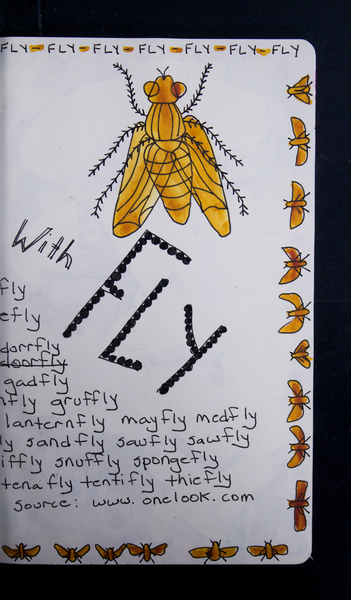 FLY - FLY - FLY - FLY - FLY - FLY - FLY
With
FLY
fly
efly
dorrfly
doorfly
gadfly
fly gruffly
lanternfly mayfly medfly
ly sandfly saufly sawfly
iffly snuffly spongefly
tenafly tentifly thiefly
source: www.onelook.com